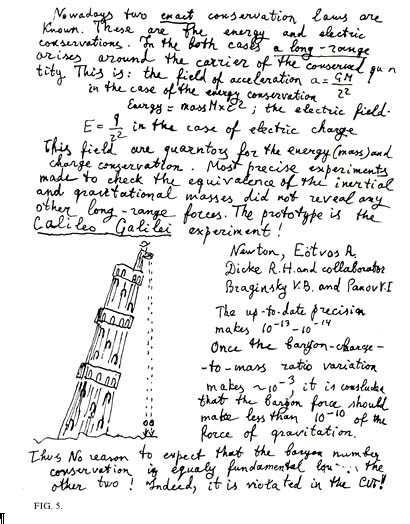 Nowadays two exact conservation laws are
known. These are the energy and electric
conservations. In the both cases a long-range
arises around the carrier of the conserved quan
tity. This is: the field of acceleration a = GM/r²
in the case of the energy conservation
Energy = mass M × c²; the electric field.
E = q/r² in the case of electric charge
This field are quarntors for the energy (mass) and
charge conservation. Most precise experiments
made to check the equivalence of the inertial
and gravitational masses did not reveal any
other long-range forces. The prototype is the
Galileo Galilei experiment!
Newton, Eötvos R.
Dicke R.H. and collaborator
Braginsky V.B. and Panov V.I
The up-to-date precision
makes 10⁻¹³-10⁻¹⁴
Once the baryon-charge-
-to-mass ratio variation
makes ~10⁻³, it is concluded
that the baryon force should
make less than 10⁻¹⁰ of the
force of gravitation.
Thus No reason to expect that the baryon number
conservation is equaly fundamental the
other two! Indeed, it is violated in the
FIG. 5.